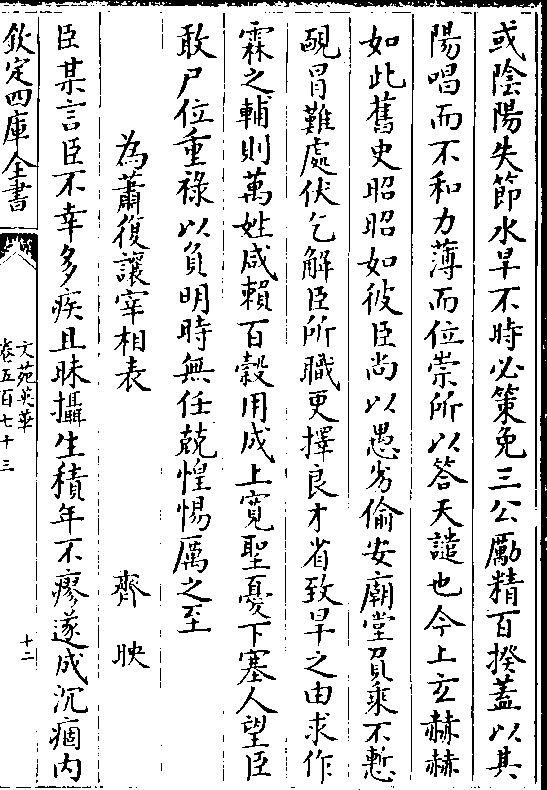 或陰陽失節水旱不時必策免三公勵精百揆蓋以其
陽唱而不和力薄而位崇所以答天譴也今上玄赫赫
如此舊史昭昭如彼臣尚以愚劣偷安廟堂負乘不慙
覥冒難處伏乞解臣所職更擇良才省致旱之由求作
霖之輔則萬姓咸賴百穀用成上寬聖憂下塞人望臣
敢尸位重祿以負明時無任兢惶惕厲之至
為蕭復讓宰相表 齊映
臣某言臣不幸多疾且昧攝生積年不瘳遂成沉痼内
欽定四庫全書
文苑英華
卷五百七十三
十二